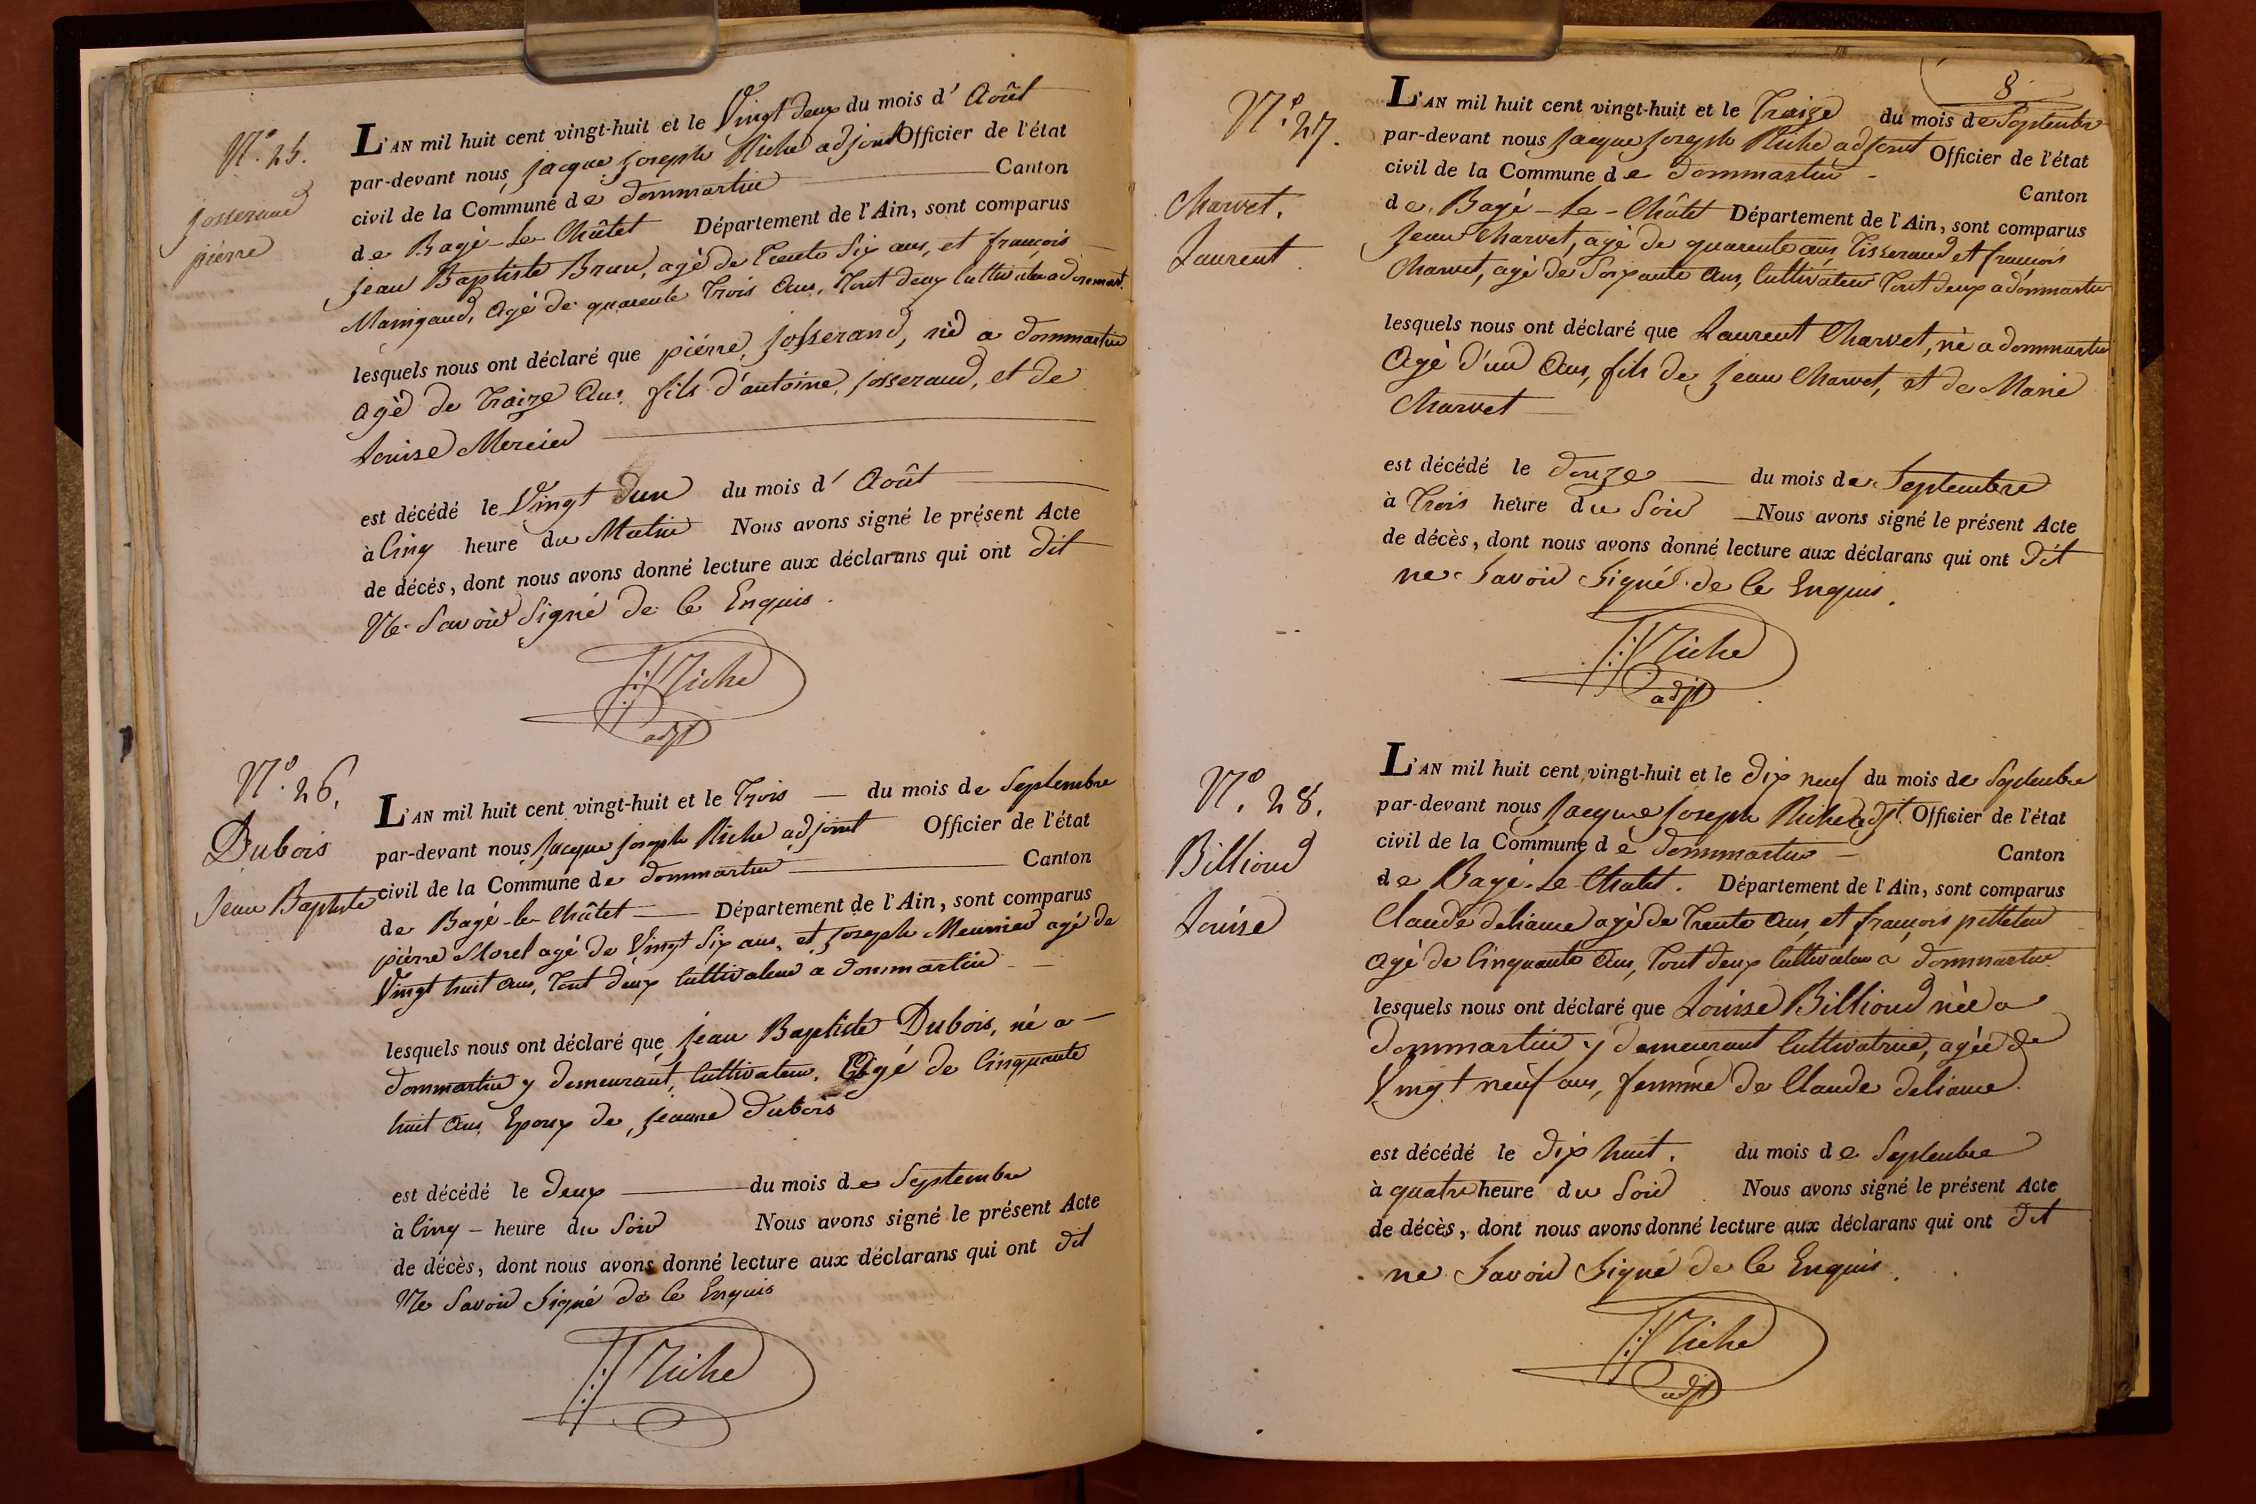 N.º 25.
Josserand
piérre
L'AN mil huit cent vingt-huit et le Vingt deux du mois d' Août
par-devant nous Jacque Joseph Riche adjoint Officier de l'état
civil de la Commune de dommartin Canton
de Bagé-le-Châtet Département de l'Ain, sont comparus
Jean Baptiste Brun, agé de Trente Six ans, et françois
Manigand, Agé de quarente Trois Ans, Tout deux Cultivateur a dommart.
lesquels nous ont déclaré que piérre, Josserand, né a dommartin
agé de Traize Ans fils d'antoine, Josserand, et de
Louise Mercier
est décédé le Vingt dun du mois d' Août
à Cinq heure du Matin Nous avons signé le présent Acte
de décés, dont nous avons donné lecture aux déclarans qui ont dit
Ne Savoir Signé de Ce Enquis.
JJ Riche
adjt
N.º 26.
Dubois
Jean Baptiste
L'AN mil huit cent vingt-huit et le Trois du mois de Septembre
par-devant nous Jacque Joseph Riche adjoint Officier de l'état
civil de la Commune de dommartin Canton
de Bagé-le-Châtet Département de l'Ain, sont comparus
piérre Morel agé de Vingt Six ans, et Joseph Meunier agé de
Vingt huit ans, Tout deux Cultivateur a dommartin
lesquels nous ont déclaré que Jean Baptiste Dubois, né a
dommartin y demeurant, Cultivateur, Agé de Cinquante
huit Ans Epoux de Jeanne dubois
est décédé le deux du mois de Septembre
à Cinq heure du Soir Nous avons signé le présent Acte
de décès, dont nous avons donné lecture aux déclarans qui ont dit
Ne Savoir Signé de Ce Enquis
JJ Riche
8
N.º 27.
Charvet.
Laurent
L'AN mil huit cent vingt-huit et le Traize du mois de Septembre
par-devant nous Jacque Joseph Riche adjoint Officier de l'état
civil de la Commune de dommartin Canton
de Bagé-Le-Châtet Département de l'Ain, sont comparus
Jean Charvet, agé de quarente ans, Tisserand et françois
Charvet, agé de Soixante Ans, Cultivateur Tout deux a dommartin
lesquels nous ont déclaré que Laurent Charvet, né a dommartin
Agé d'un Ans, fils de Jean Charvet, et de Marie
Charvet
est décédé le douze du mois de Septembre
à Trois heure du Soir Nous avons signé le présent Acte
de décès, dont nous avons donné lecture aux déclarans qui ont dit
ne Savoir Signé de Ce Enquis.
JJ Riche
adjt
N.º 28.
Billioud
Louise
L'AN mil huit cent vingt-huit et le dix neuf du mois de Septembre
par-devant nous Jacque Joseph Riche adjt. Officier de l'état
civil de la Commune de dommartin Canton
de Bagé-Le-Chatet. Département de l'Ain, sont comparus
Claude deliance agé de Trente Ans, et françois pelletin
agé de Cinquante Ans, Tout deux Cultivateur a dommartin
lesquels nous ont déclaré que Louise Billioud née a
dommartin y demeurant Cultivatrice, agée de
Vingt neuf ans, femme de Claude deliance
est décédé le dix huit. du mois de Septembre
à quatre heure du Soir Nous avons signé le présent Acte
de décès, dont nous avons donné lecture aux déclarans qui ont dit
ne Savoir Signé de Ce Enquis.
JJ Riche
adjt